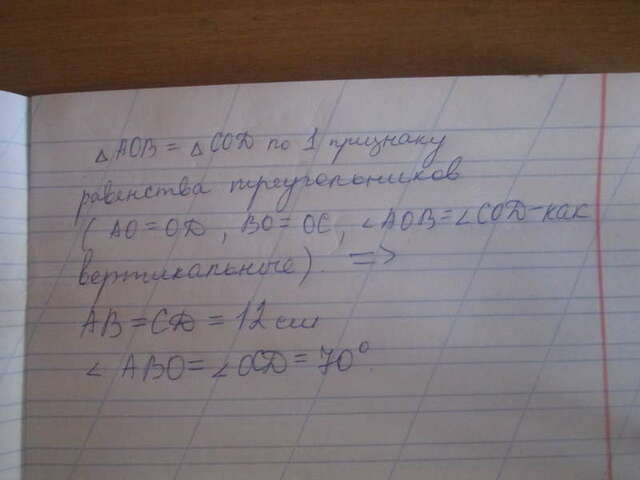 △ AOB = △ COD по 1 признаку
равенства треугольников
( AO = OD , BO = OC, ∠AOB = ∠COD - как
вертикальные). =>
AB = CD = 12 см
∠ ABO = ∠ OCD = 70°